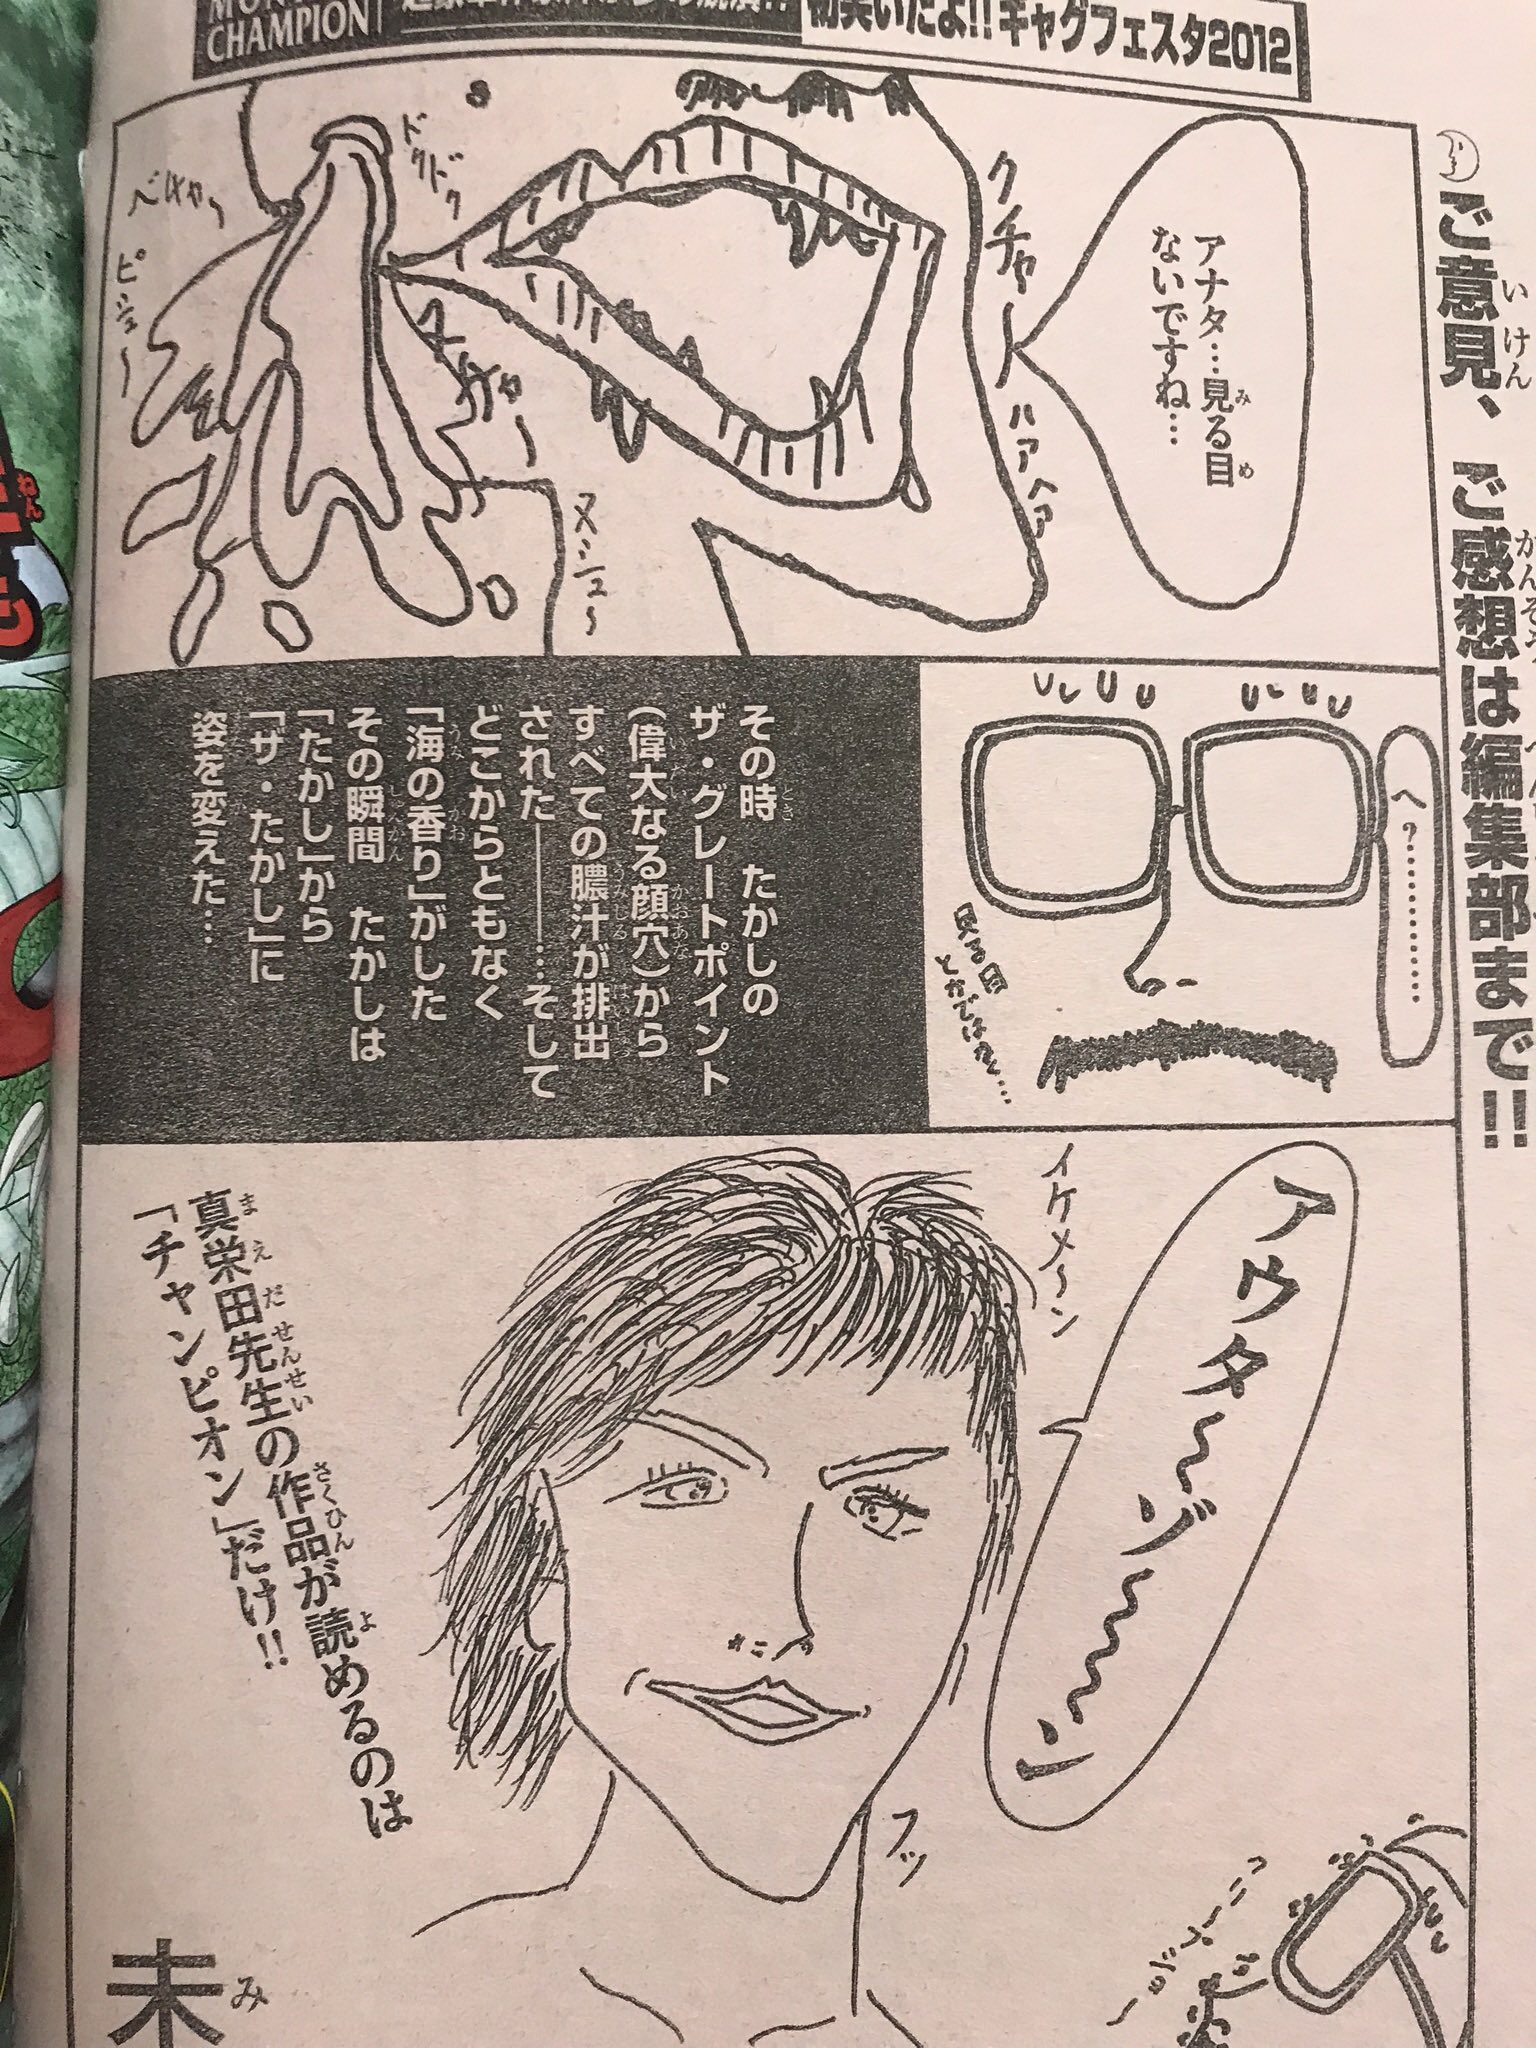 CHAMPION
初笑いだよ!!ギャグフェスタ2012
ご意見、ご感想は編集部まで!!
アナタ…見る目
ないですね…
クチャー
ハァハァ
ドクドク
ヌチャー
ヌシュ〜
ベチャッ
ピシュ〜
へ?…………
その時 たかしの
ザ・グレートポイント
(偉大なる顔穴)から
すべての膿汁が排出
された———……そして
どこからともなく
「海の香り」がした
その瞬間 たかしは
「たかし」から
「ザ・たかし」に
姿を変えた…
アウタ〜ゾ〜〜ン
イケメ〜ン
フッ
真栄田先生の作品が読めるのは
「チャンピオン」だけ!!
未